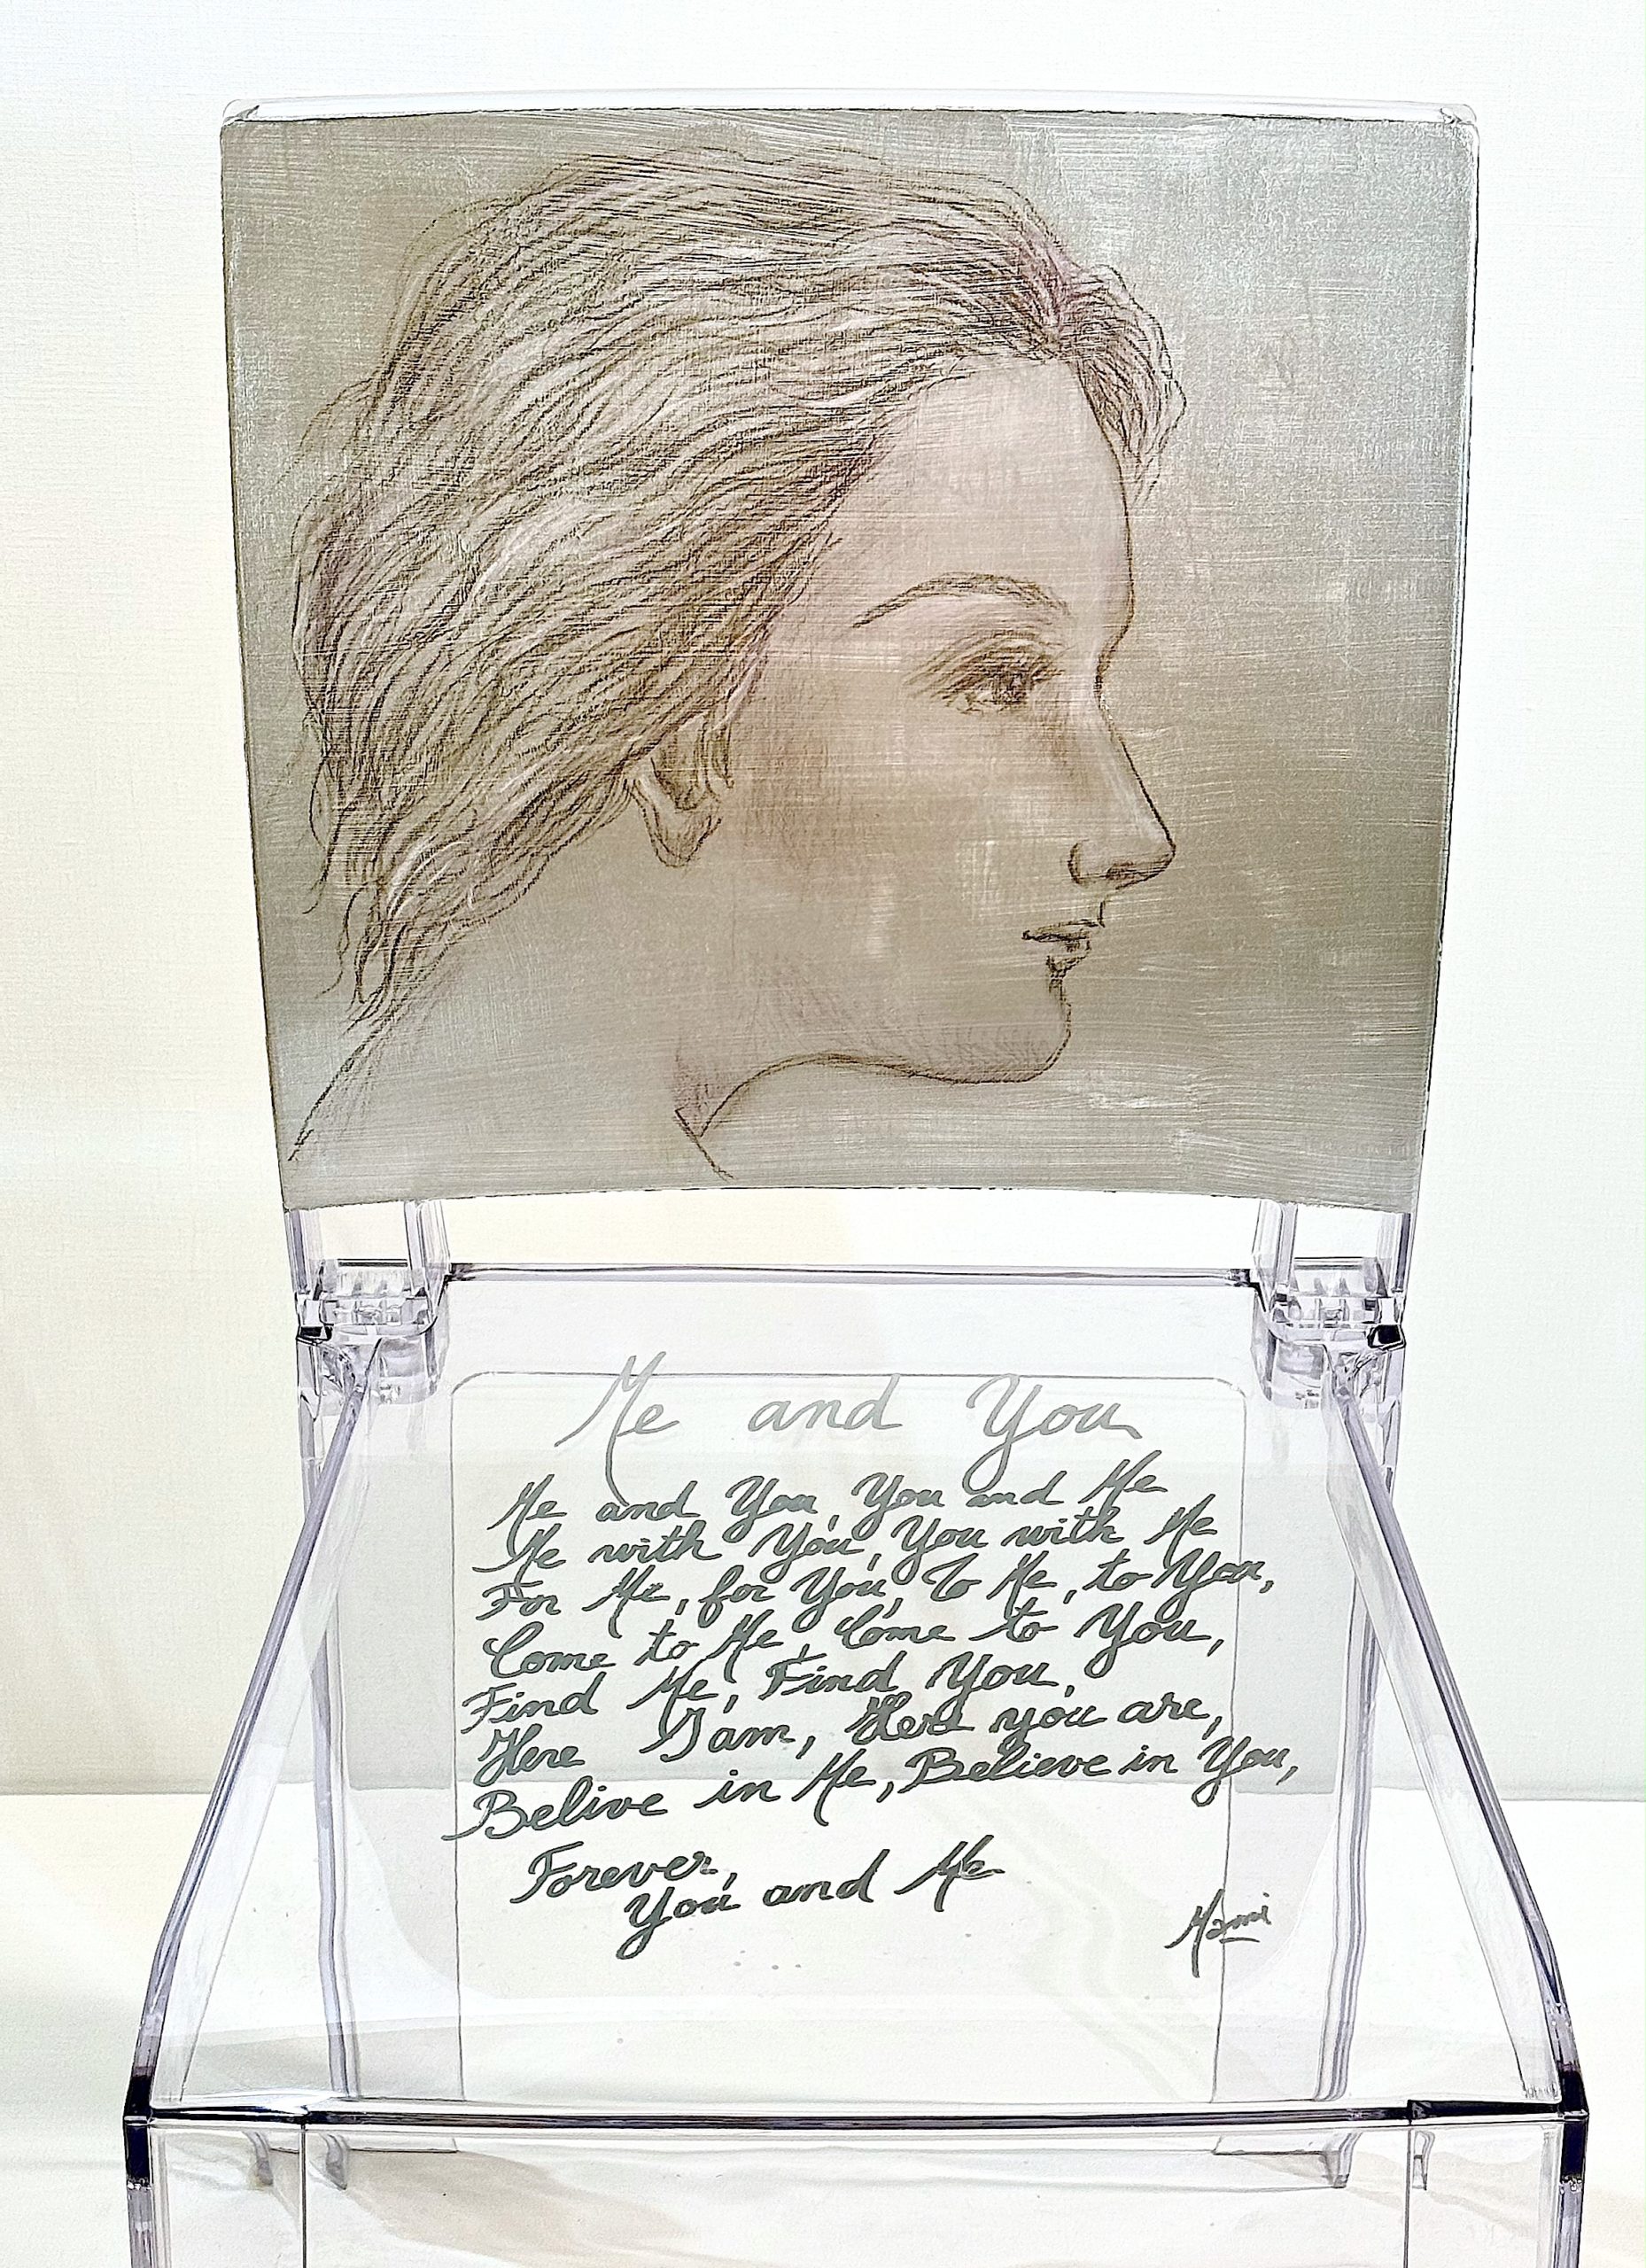 Me and You
Me and You, You and Me
Me with You, You with Me
For Me, for You, To Me, to You,
Come to Me, Come to You,
Find Me, Find You,
Here I am, Here you are,
Belive in Me, Believe in You,
Forever,
You and Me
Mami